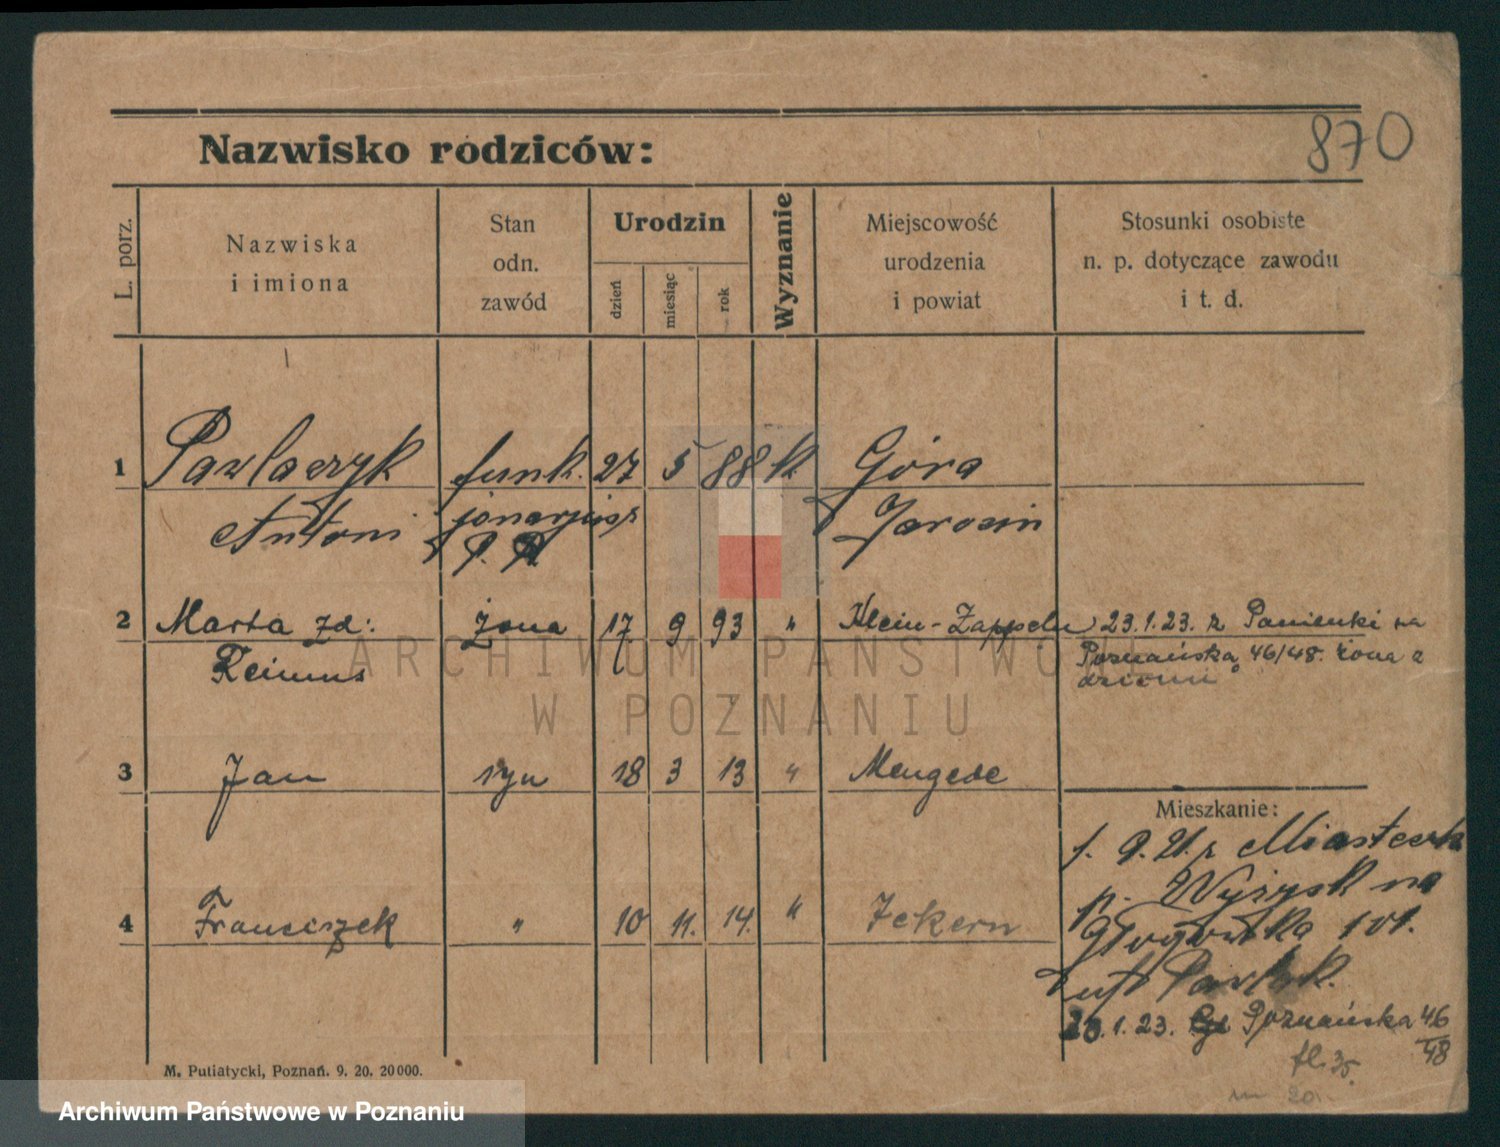 870
Nazwisko rodziców:
L. porz.
Nazwiska
i imiona
Stan
odn.
zawód
Urodzin
dzień
miesiąc
rok
Wyznanie
Miejscowość
urodzenia
i powiat
Stosunki osobiste
n. p. dotyczące zawodu
i t. d.
1 Pawlaczyk funk. 27 5 88 k. Góra
Antoni jonarjusz Jarocin
P. P.
2 Marta zd: żona 17. 9 93 " Klein-Zappeln 23.1.23. z Panienki na
Reimus Poznańska 46/48. żona z
dziećmi
3 Jan syn 18 3 13 " Mengede
Mieszkanie:
1. 9. 21. z Miasteczka
p. Wyżysk na
4 Franciszek " 10 11. 14. " Ickern
Głogowska 101.
Pawlak.
23.1.23. Poznańska 46/48
M. Putiatycki, Poznań. 9. 20. 20000.
ARCHIWUM PAŃSTWOWE
W POZNANIU
Archiwum Państwowe w Poznaniu